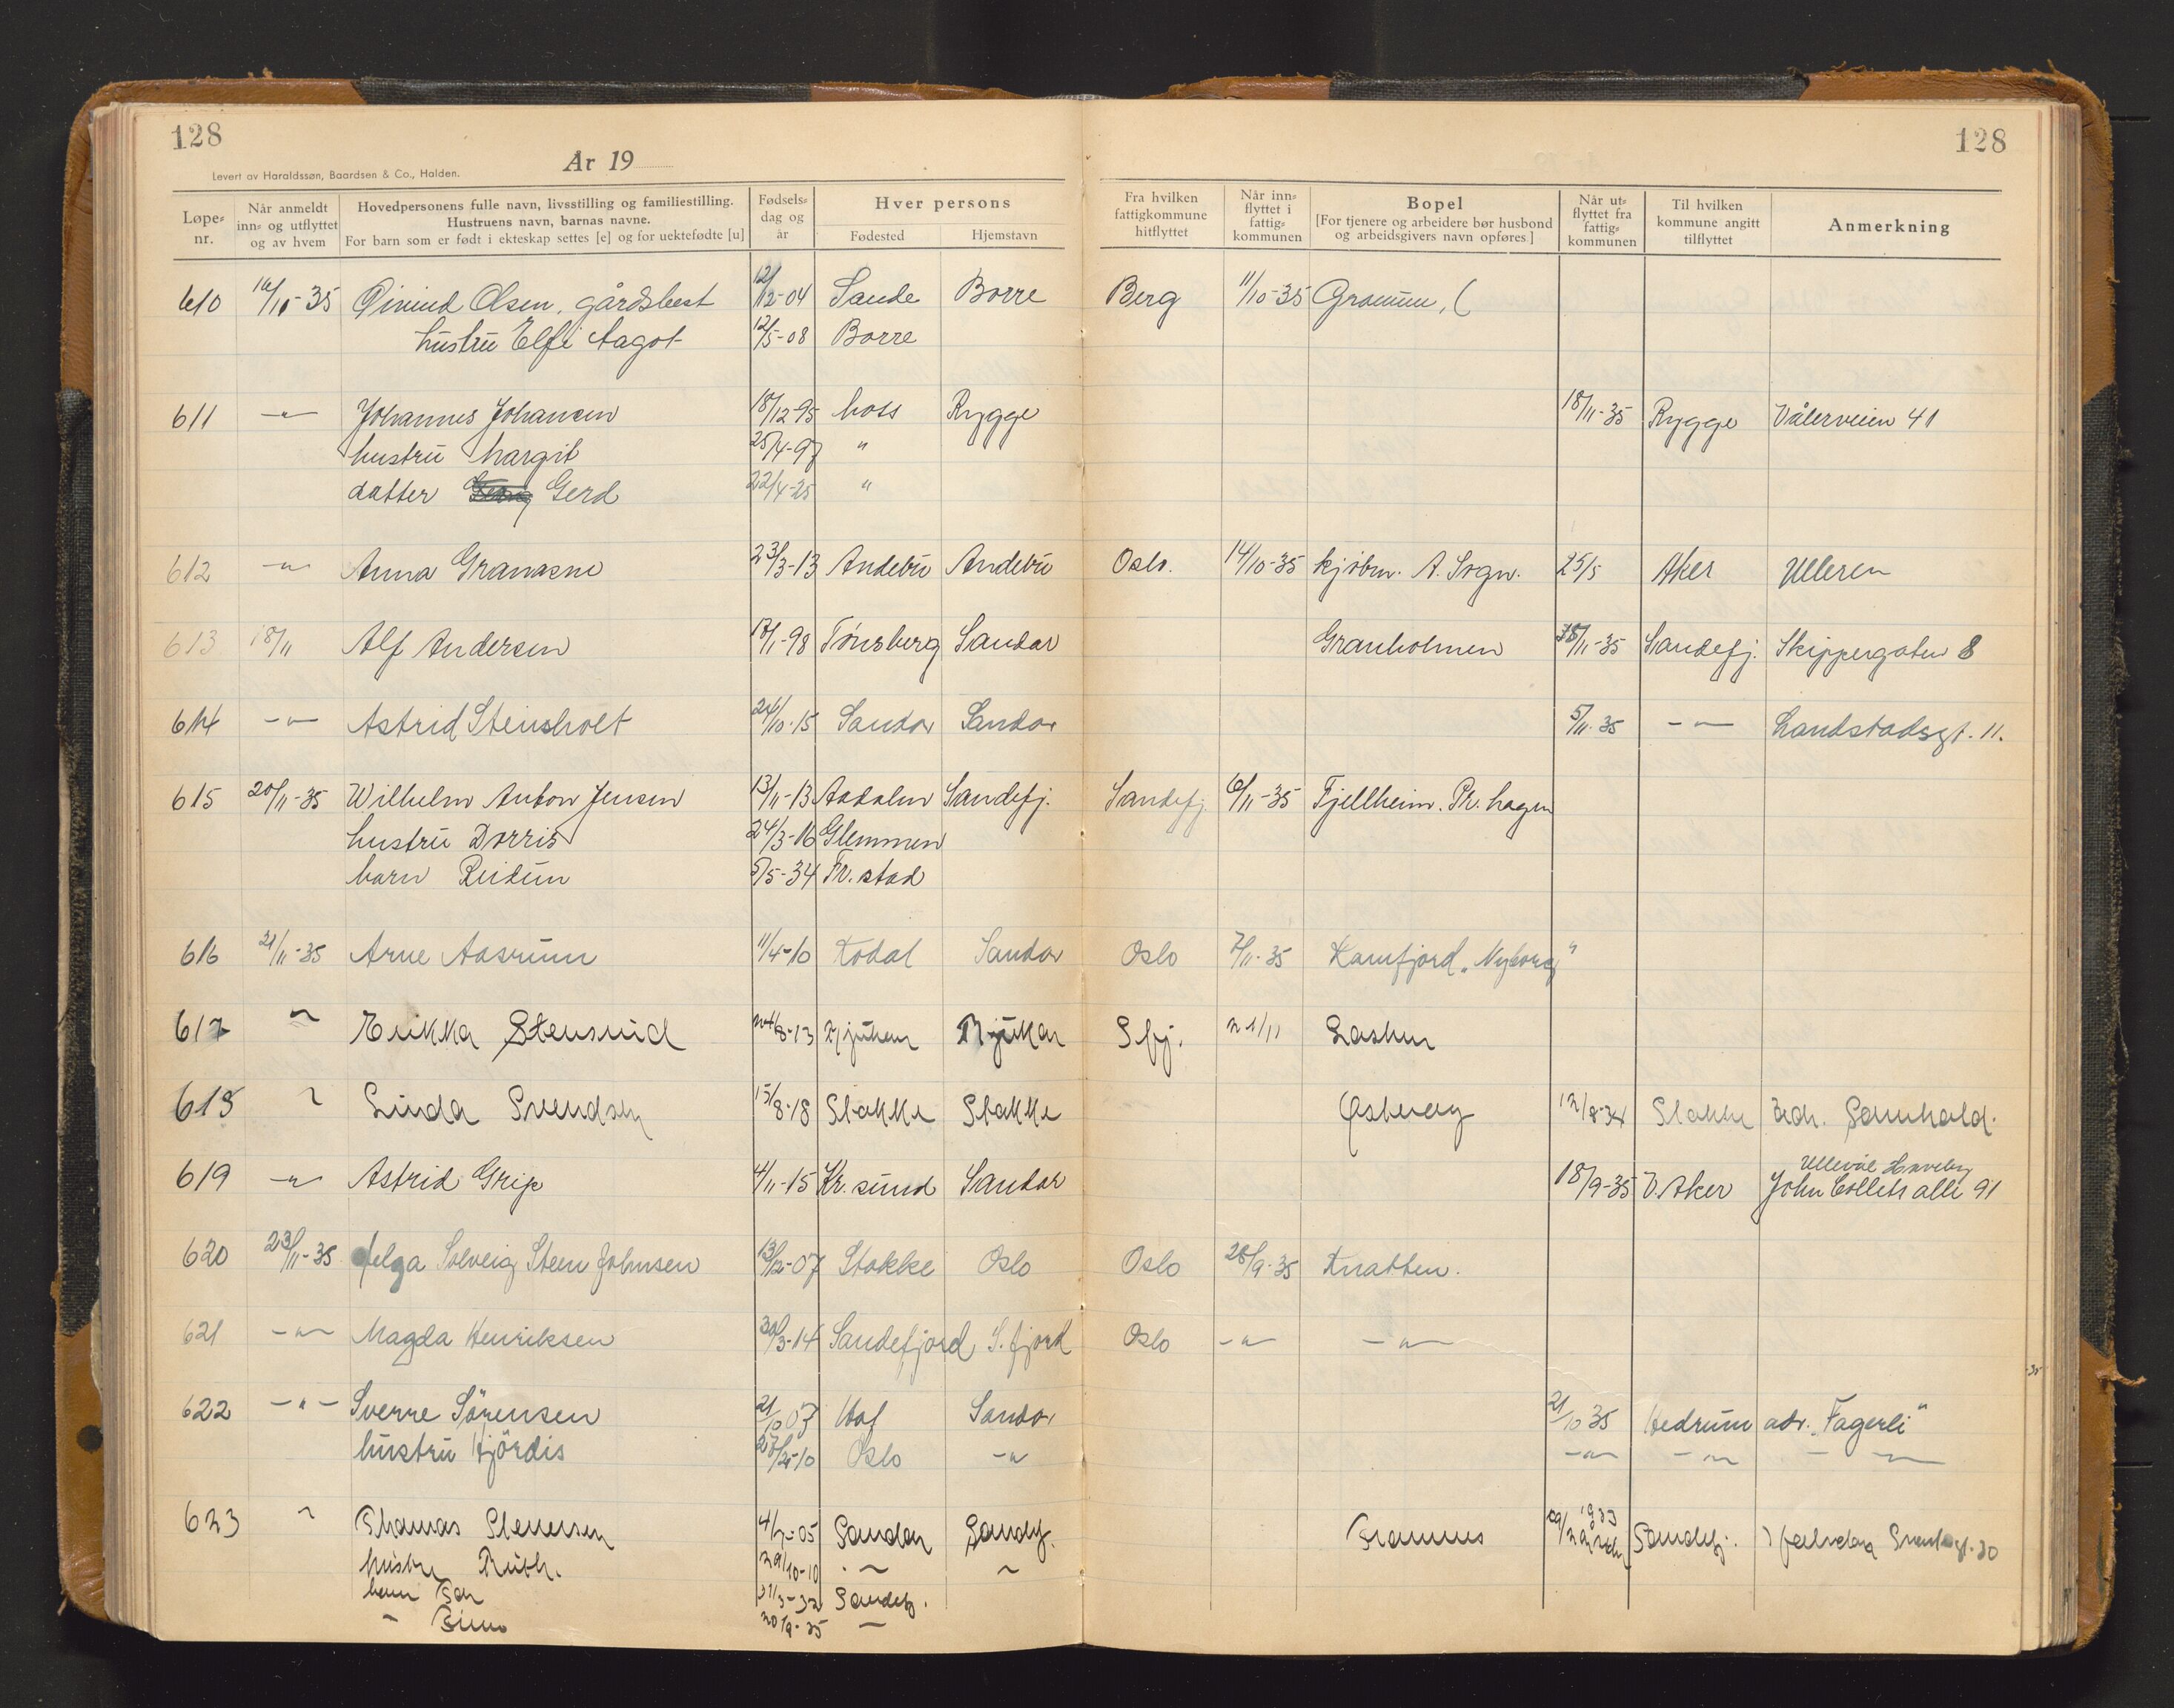 128
128
År 19
Levert av Haraldssøn, Baardsen & Co., Halden.
Løpe-nr. Når anmeldt inn- og utflyttet og av hvem Hovedpersonens fulle navn, livsstilling og familiestilling. Hustruens navn, barnas navne. For barn som er født i ekteskap settes [e] og for uektefødte [u] Fødsels-dag og år Hver persons Fødested Hjemstavn Fra hvilken fattigkommune hitflyttet Når inn-flyttet i fattig-kommunen Bopel [For tjenere og arbeidere bør husbond og arbeidsgivers navn opføres.] Når ut-flyttet fra fattig-kommunen Til hvilken kommune angitt tilflyttet Anmerkning
610 16/11-35 Øivind Olsen, gårdsbest 12/12-04 Sande Borre Berg 11/10-35 Gramum, (
hustru Elfi Aagot 12/5-08 Borre
611 -"- Johannes Johansen 18/12-95 Moss Rygge 18/11-35 Rygge Vålerveien 41
hustru Margit 25/4-97 "
datter Gerd 22/4-25 "
612 -"- Anna Granasne 23/3-13 Andebu Andebu Oslo. 14/10-35 kjøbm. A. Sogn. 25/5 Aker Ulleren
613 18/11 Alf Andersen 17/1-98 Tønsberg Sandar Granholmen 15/11-35 Sandefj. Skippergaten 8
614 -"- Astrid Steinsholt 24/10-15 Sandar Sandar 5/11-35 -"- Landstadsgt. 11.
615 20/11-35 Wilhelm Anton Jensen 13/11-13 Aadalen Sandefj. Sandefj. 6/11-35 Fjellheim. Pr. hagen
hustru Dorris 24/3-16 Glemmen
barn Reidun 5/5-34 Fr. stad
616 21/11-35 Arne Aasrum 11/4-10 Kodal Sandar Oslo 7/11-35 Kamfjord "Nyborg"
617 " Rukka Stensrud 24/8-13 Rjukan Rjukan Sfj. 21/11 Lasken
618 " Linda Svendsen 15/8-18 Stokke Stokke Østberg 12/8-34 Stokke adr. Sauhold.
619 -"- Astrid Grip 4/11-15 Kr. sund Sandar 18/9-35 V. Aker Ullevål Haveby John Colletts alle 91
620 23/11-35 Helga Solveig Steen Johnsen 13/2-07 Stokke Oslo Oslo 28/9-35 Knatten.
621 -"- Magda Henriksen 30/3-14 Sandefjord S. fjord Oslo -"- -"-
622 -"- Sverre Sørensen 21/10 07 Hof Sandar 21/10 35 Hedrum adr. "Fagerli"
hustru Hjördis 27/2-10 Oslo -"- -"- -"- -"-
623 " Thomas Stenersen 4/7-05 Sandar Sandefj. Framnes 1933 Sandefj.
hustru Ruth. 29/10-10 -"- "
barn 31/3-32 Sandefj.
20/9-35 -"-